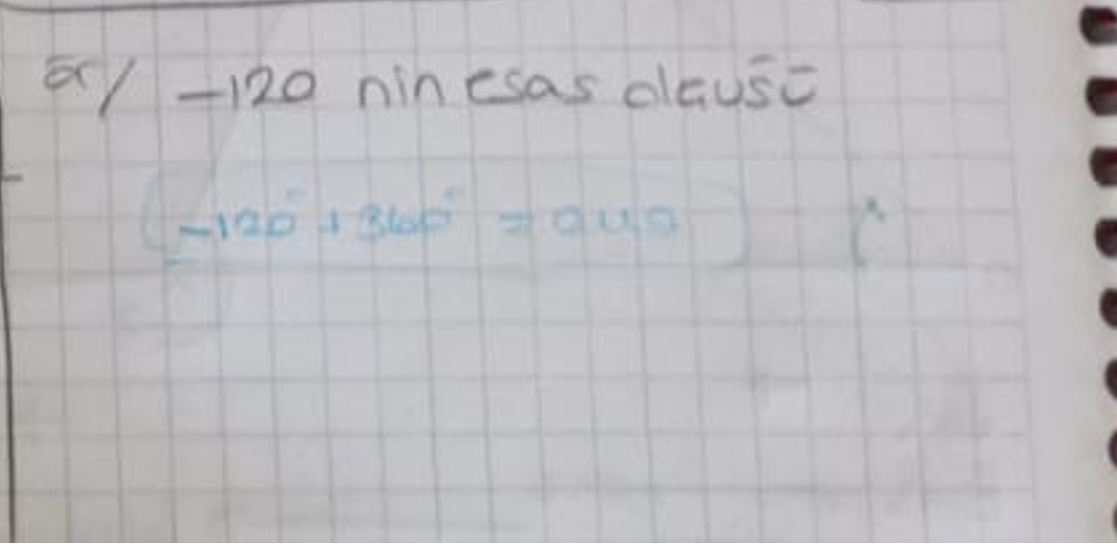 ör/ -120 nin esas ölçüsü
-120° + 360° = 240